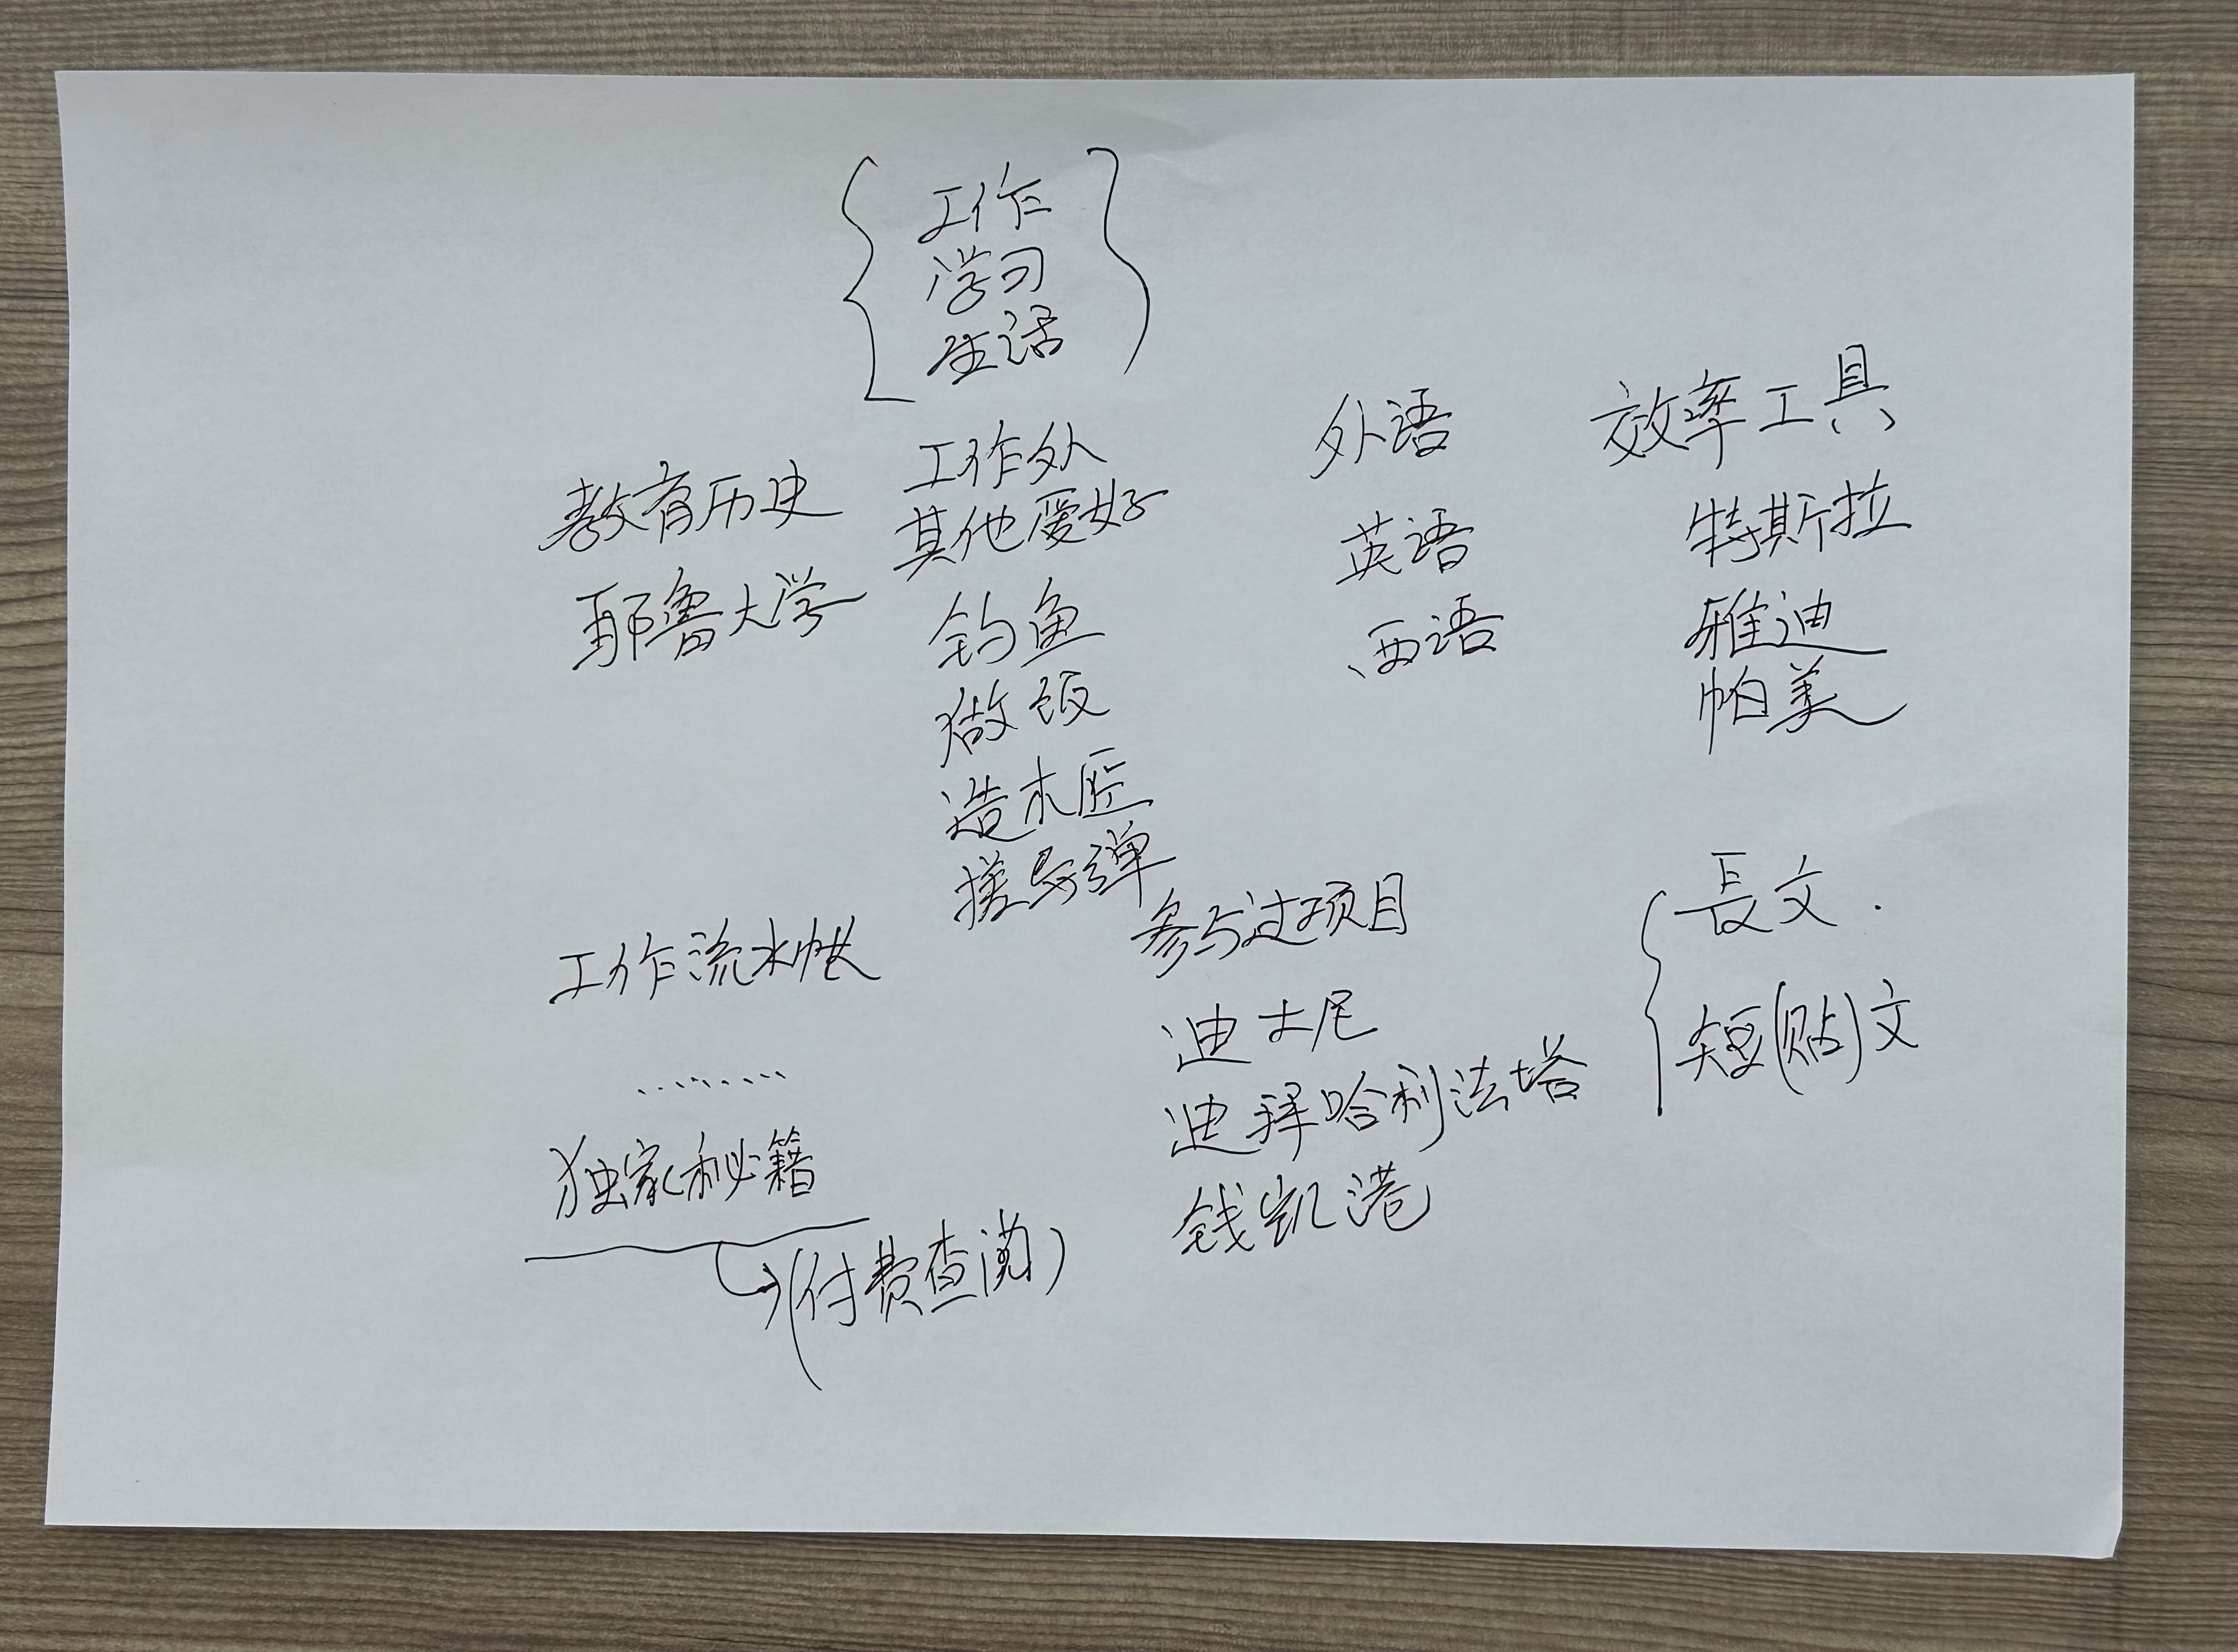 工作
学习
生活
教育历史
耶鲁大学
工作外
其他爱好
钓鱼
做饭
造木匠
搓导弹
外语
英语
西语
效率工具
特斯拉
雅迪
帕美
工作流水帐
………
独家秘籍
(付费查阅)
参与过项目
迪士尼
迪拜哈利法塔
钱凯港
長文.
短(贴)文